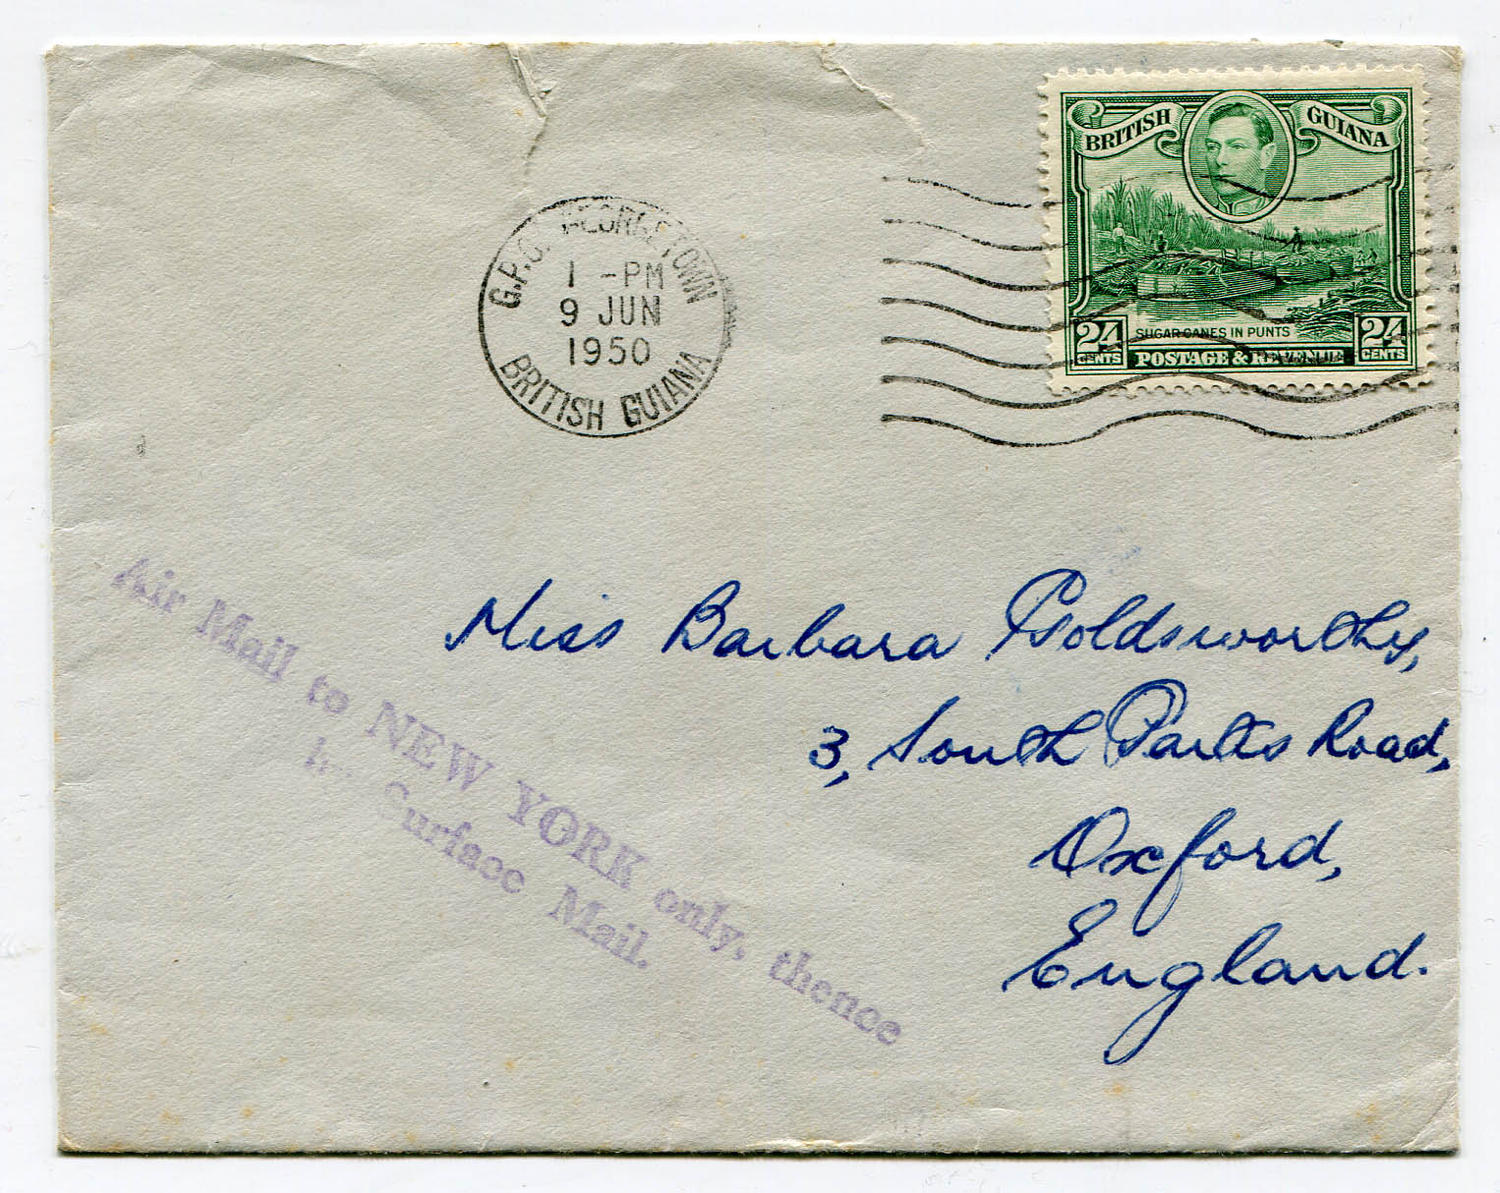 BRITISH GUIANA
24 CENTS
SUGAR CANES IN PUNTS
24 CENTS
POSTAGE & REVENUE
G.P.O. GEORGETOWN
1 -PM
9 JUN
1950
BRITISH GUIANA
Miss Barbara Goldsworthy,
3, South Parks Road,
Oxford,
England.
Air Mail to NEW YORK only, thence
by Surface Mail.